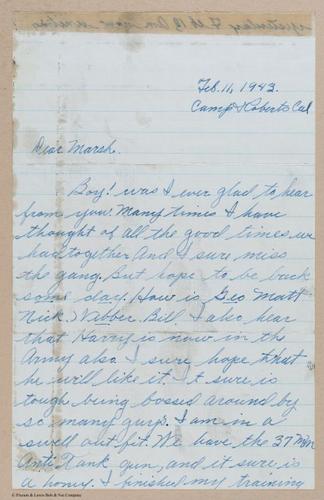 yesterday Feb 18
Feb. 11, 1943.
Camp Roberts Cal
Dear Marsh.
Boy! was I ever glad to hear
from you. Many times I have
thought of all the good times we
had together And I sure miss
the gang. But hope to be back
some day. How is Geo Matt
Nick. Nibber. Bill. I also hear
that Harry is now in the
Army also. I sure hope that
he will like it. It sure is
tough being bossed around by
so many guys. I am in a
swell out fit. We have the 37 MM
Anti Tank gun, and it sure is
a honey. I finished my training